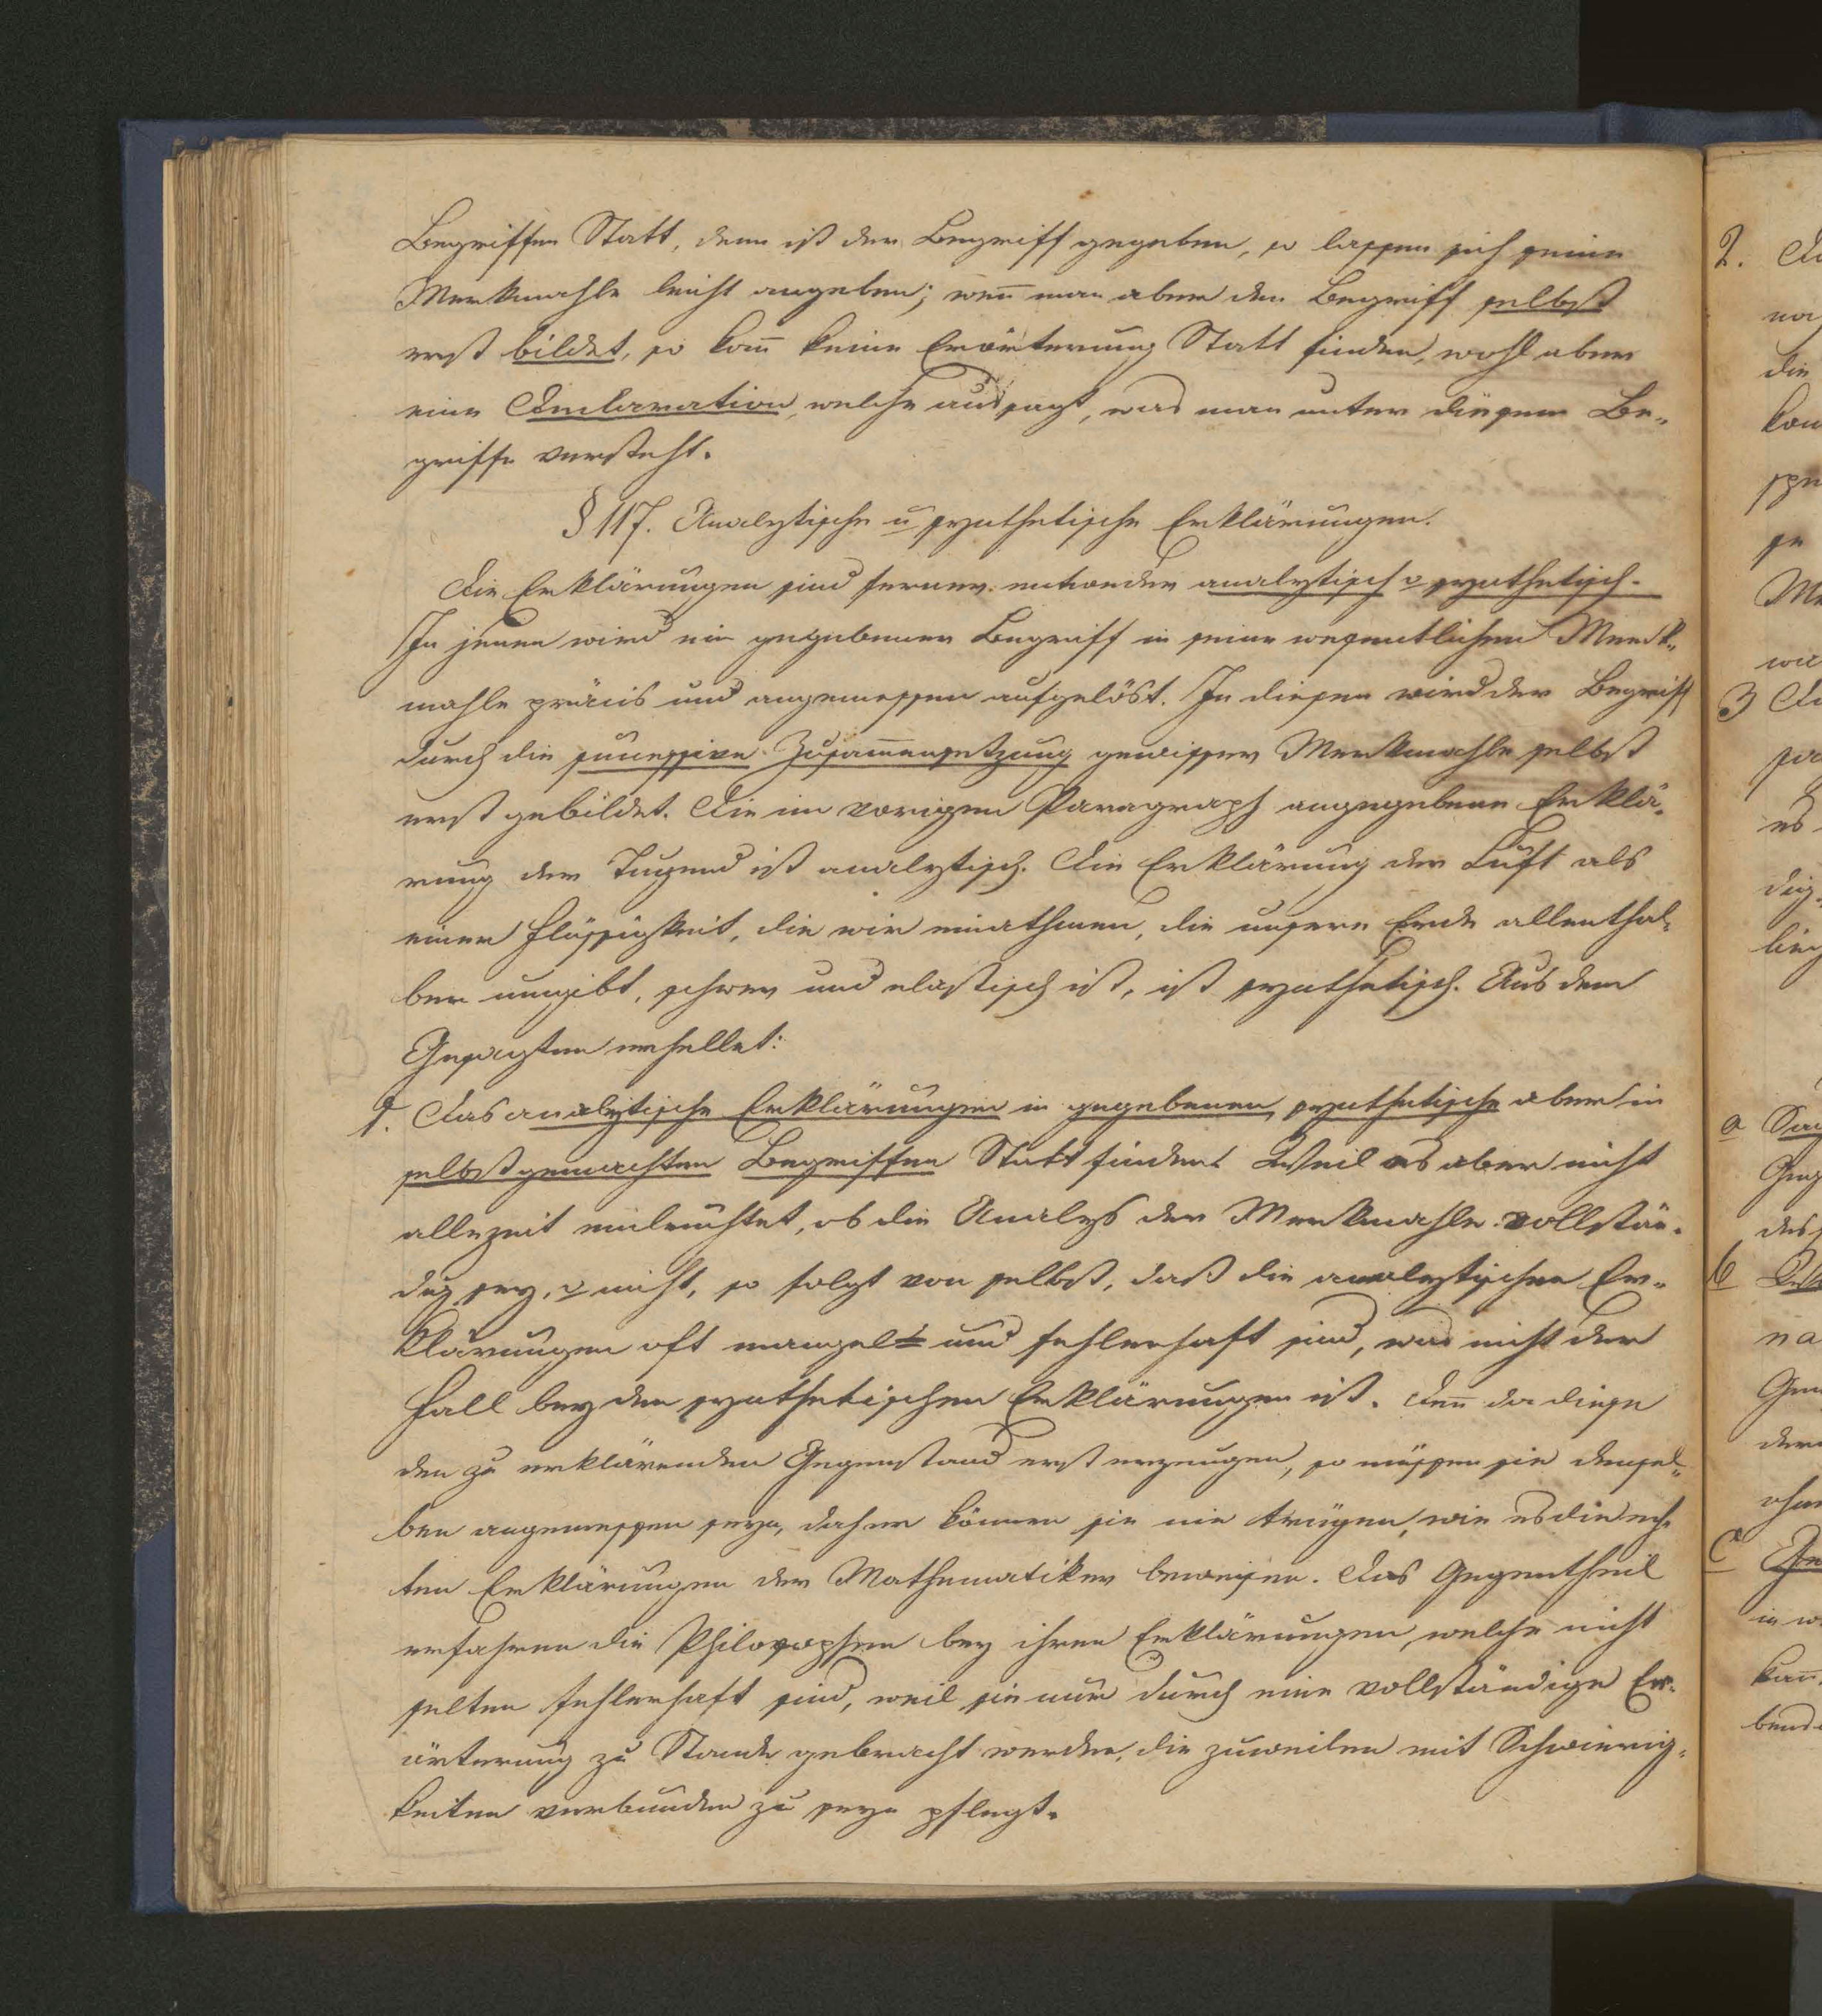 Begriffen Statt, denn ist der Begriff gegeben, so lassen sich seine
Merkmahle leicht angeben; weñ man aber den Begriff selbst
erst bildet, so kañ keine Erörterung Statt finden, wohl aber
eine Declaration, welche aussagt, was man unter diesem Be„
griffe versteht.
§ 117. Analytische u synthetische Erklärungen.
Die Erklärungen sind ferner entweder analytisch o synthetisch.
In jenen wird ein gegebener Begriff in seine wesentlichen Merk„
mahle präcis und angemessen aufgelöst. In diesen wird der Begriff
durch die successive Zusam̅ensetzung gewisser Merkmahle selbst
erst gebildet. Die im vorigen Paragraph angegebene Erklä„
rung der Tugend ist analytisch. Die Erklärung der Luft als
einer Flüssigkeit, die wir einathmen, die unsere Erde allenthal„
ben umgibt, schwer und elastisch ist, ist synthetisch. Aus dem
Gesagten erhellet:
1. Das analytische Erklärungen in gegebenen, synthetische aber in
selbstgemachten Begriffen Statt finden. Weil es aber nicht
allezeit einleuchtet, ob die Analys der Merkmahle vollstän„
dig sey, o nicht, so folgt von selbst, daß die analytischen Er„
klärungen oft mangel= und fehlerhaft sind, was nicht der
Fall bey den synthetischen Erklärungen ist. Deñ da diese
den zu erklärenden Gegenstand erst erzeugen, so müssen sie demsel„
ben angemessen seyn, daher können sie nie trügen, wie es die ech„
ten Erklärungen der Mathematiker beweisen. Das Gegentheil
erfahren die Philosophen bey ihren Erklärungen, welche nicht
selten fehlerhaft sind, weil sie nur durch eine vollständige Er„
örterung zu Stande gebracht werden, die zuweilen mit Schwierig„
keiten verbunden zu seyn pflegt.